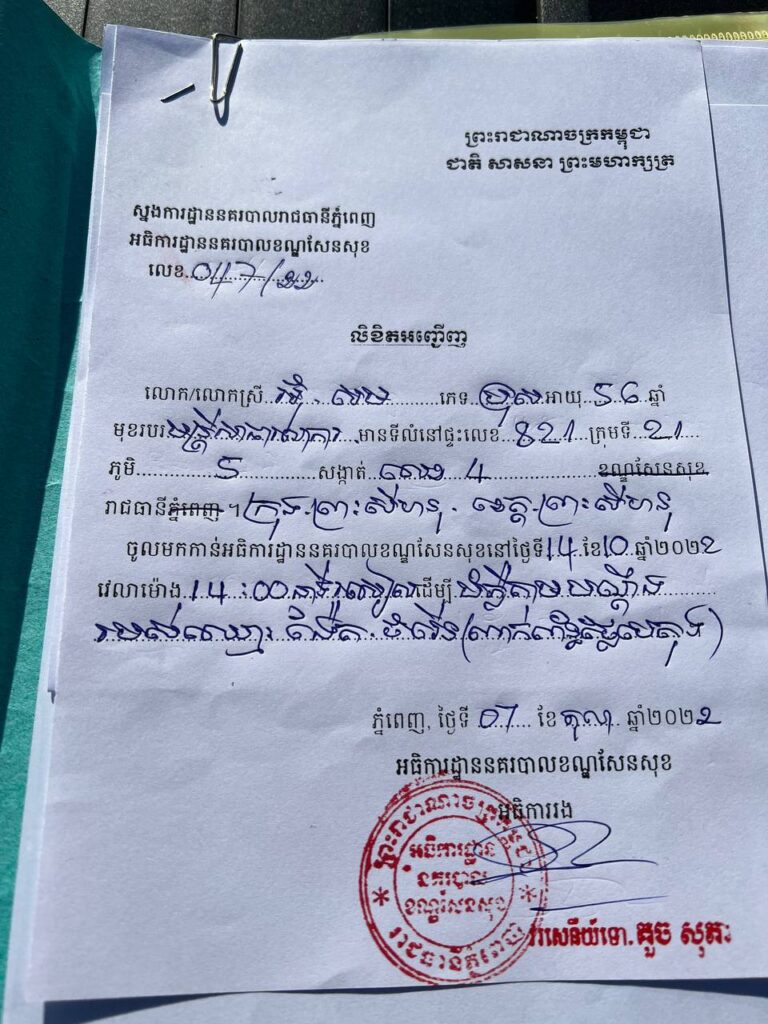 ព្រះរាជាណាចក្រកម្ពុជា
ជាតិ សាសនា ព្រះមហាក្សត្រ
ស្នងការដ្ឋាននគរបាលរាជធានីភ្នំពេញ
អធិការដ្ឋាននគរបាលខណ្ឌសែនសុខ
លេខ.047/២២
លិខិតអញ្ជើញ
លោក/លោកស្រី ភេទ ប្រុស អាយុ 56 ឆ្នាំ
មុខរបរ មន្ត្រីសាធារណការ មានទីលំនៅផ្ទះលេខ 821 ក្រុមទី 21
ភូមិ 5 សង្កាត់ លេខ 4 ខណ្ឌសែនសុខ
រាជធានីភ្នំពេញ ។ ក្រុង ព្រះសីហនុ . ខេត្ត ព្រះសីហនុ
ចូលមកកាន់អធិការដ្ឋាននគរបាលខណ្ឌសែនសុខនៅថ្ងៃទី 14 ខែ 10 ឆ្នាំ២០២២
វេលាម៉ោង 14:00 នាទីរសៀល ដើម្បី បំភ្លឺតាមបណ្ដឹង
របស់ឈ្មោះ
ភ្នំពេញ, ថ្ងៃទី 07 ខែ តុលា ឆ្នាំ២០២២
អធិការដ្ឋាននគរបាលខណ្ឌសែនសុខ
អធិការរង
ព្រះរាជាណាចក្រកម្ពុជា
អធិការដ្ឋាន
នគរបាល
ខណ្ឌសែនសុខ
រាជធានីភ្នំពេញ
វរសេនីយ៍ទោ. គួច សុភៈ